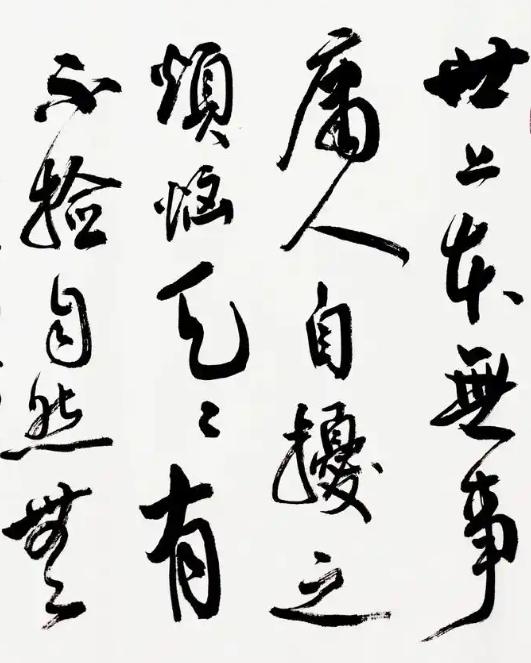 世上本無事
庸人自擾之
煩惱天天有
不撿自然無